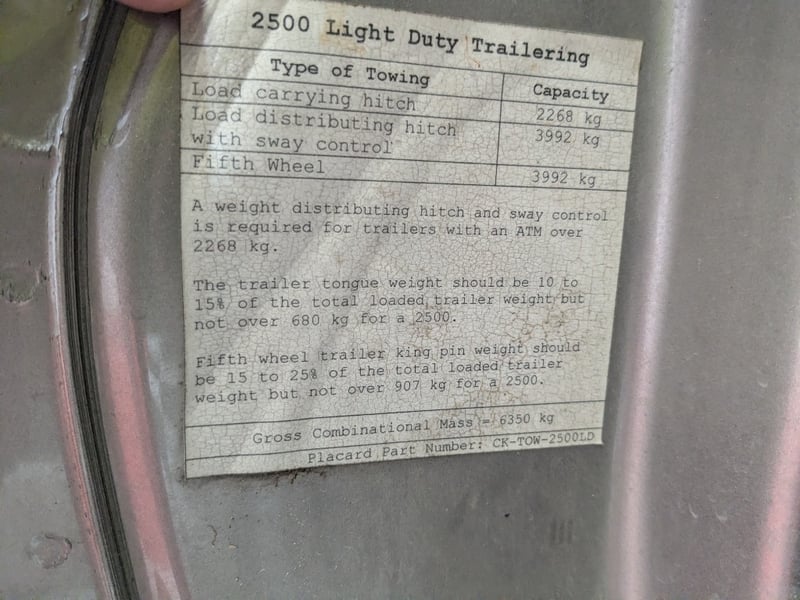 2500 Light Duty Trailering
Type of Towing Capacity
Load carrying hitch 2268 kg
Load distributing hitch 3992 kg
with sway control
Fifth Wheel 3992 kg
A weight distributing hitch and sway control
is required for trailers with an ATM over
2268 kg.
The trailer tongue weight should be 10 to
15% of the total loaded trailer weight but
not over 680 kg for a 2500.
Fifth wheel trailer king pin weight should
be 15 to 25% of the total loaded trailer
weight but not over 907 kg for a 2500.
Gross Combinational Mass = 6350 kg
Placard Part Number: CK-TOW-2500LD